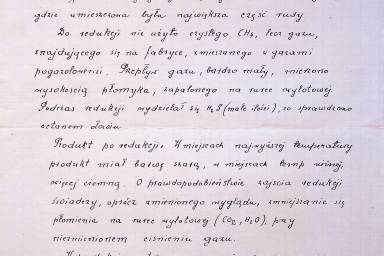 gdzie umieszczona była największa część rudy
Do redukcji nie użyto czystego CH₄, lecz gazu,
znajdującego się na fabryce, zmieszanego z gazami
pogazolowemi. Przepływ gazu, bardzo mały, mierzono
wysokością płomyka, zapalonego na rurce wylotowej.
Podczas redukcji wydzielał się H₂S (małe ilości), co sprawdzono
octanem ołowiu
Produkt po redukcji. W miejscach najwyższej temperatury
produkt miał barwę szarą, w miejscach temp niższej,
więcej ciemną. O prawdopodobieństwie zajścia redukcji
świadczy, oprócz zmienionego wyglądu, zmniejszanie się
płomienia na rurce wylotowej (CO₂, H₂O), przy
niezmienionem ciśnieniu gazu.